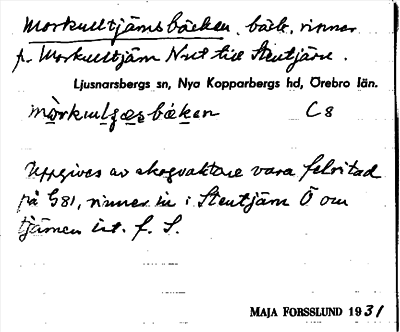 Morkulltjärnsbäcken, bäck, rinner
fr. Morkulltjärn N ut till Stentjärn.
Ljusnarsbergs sn, Nya Kopparbergs hd, Örebro län.
mòrkulʂæɳsbäken C8
Uppgives av skogvaktare vara felritad
på G81, rinner in i Stentjärn Ö om
tjärnen ist. f. S.
MAJA FORSSLUND 1931